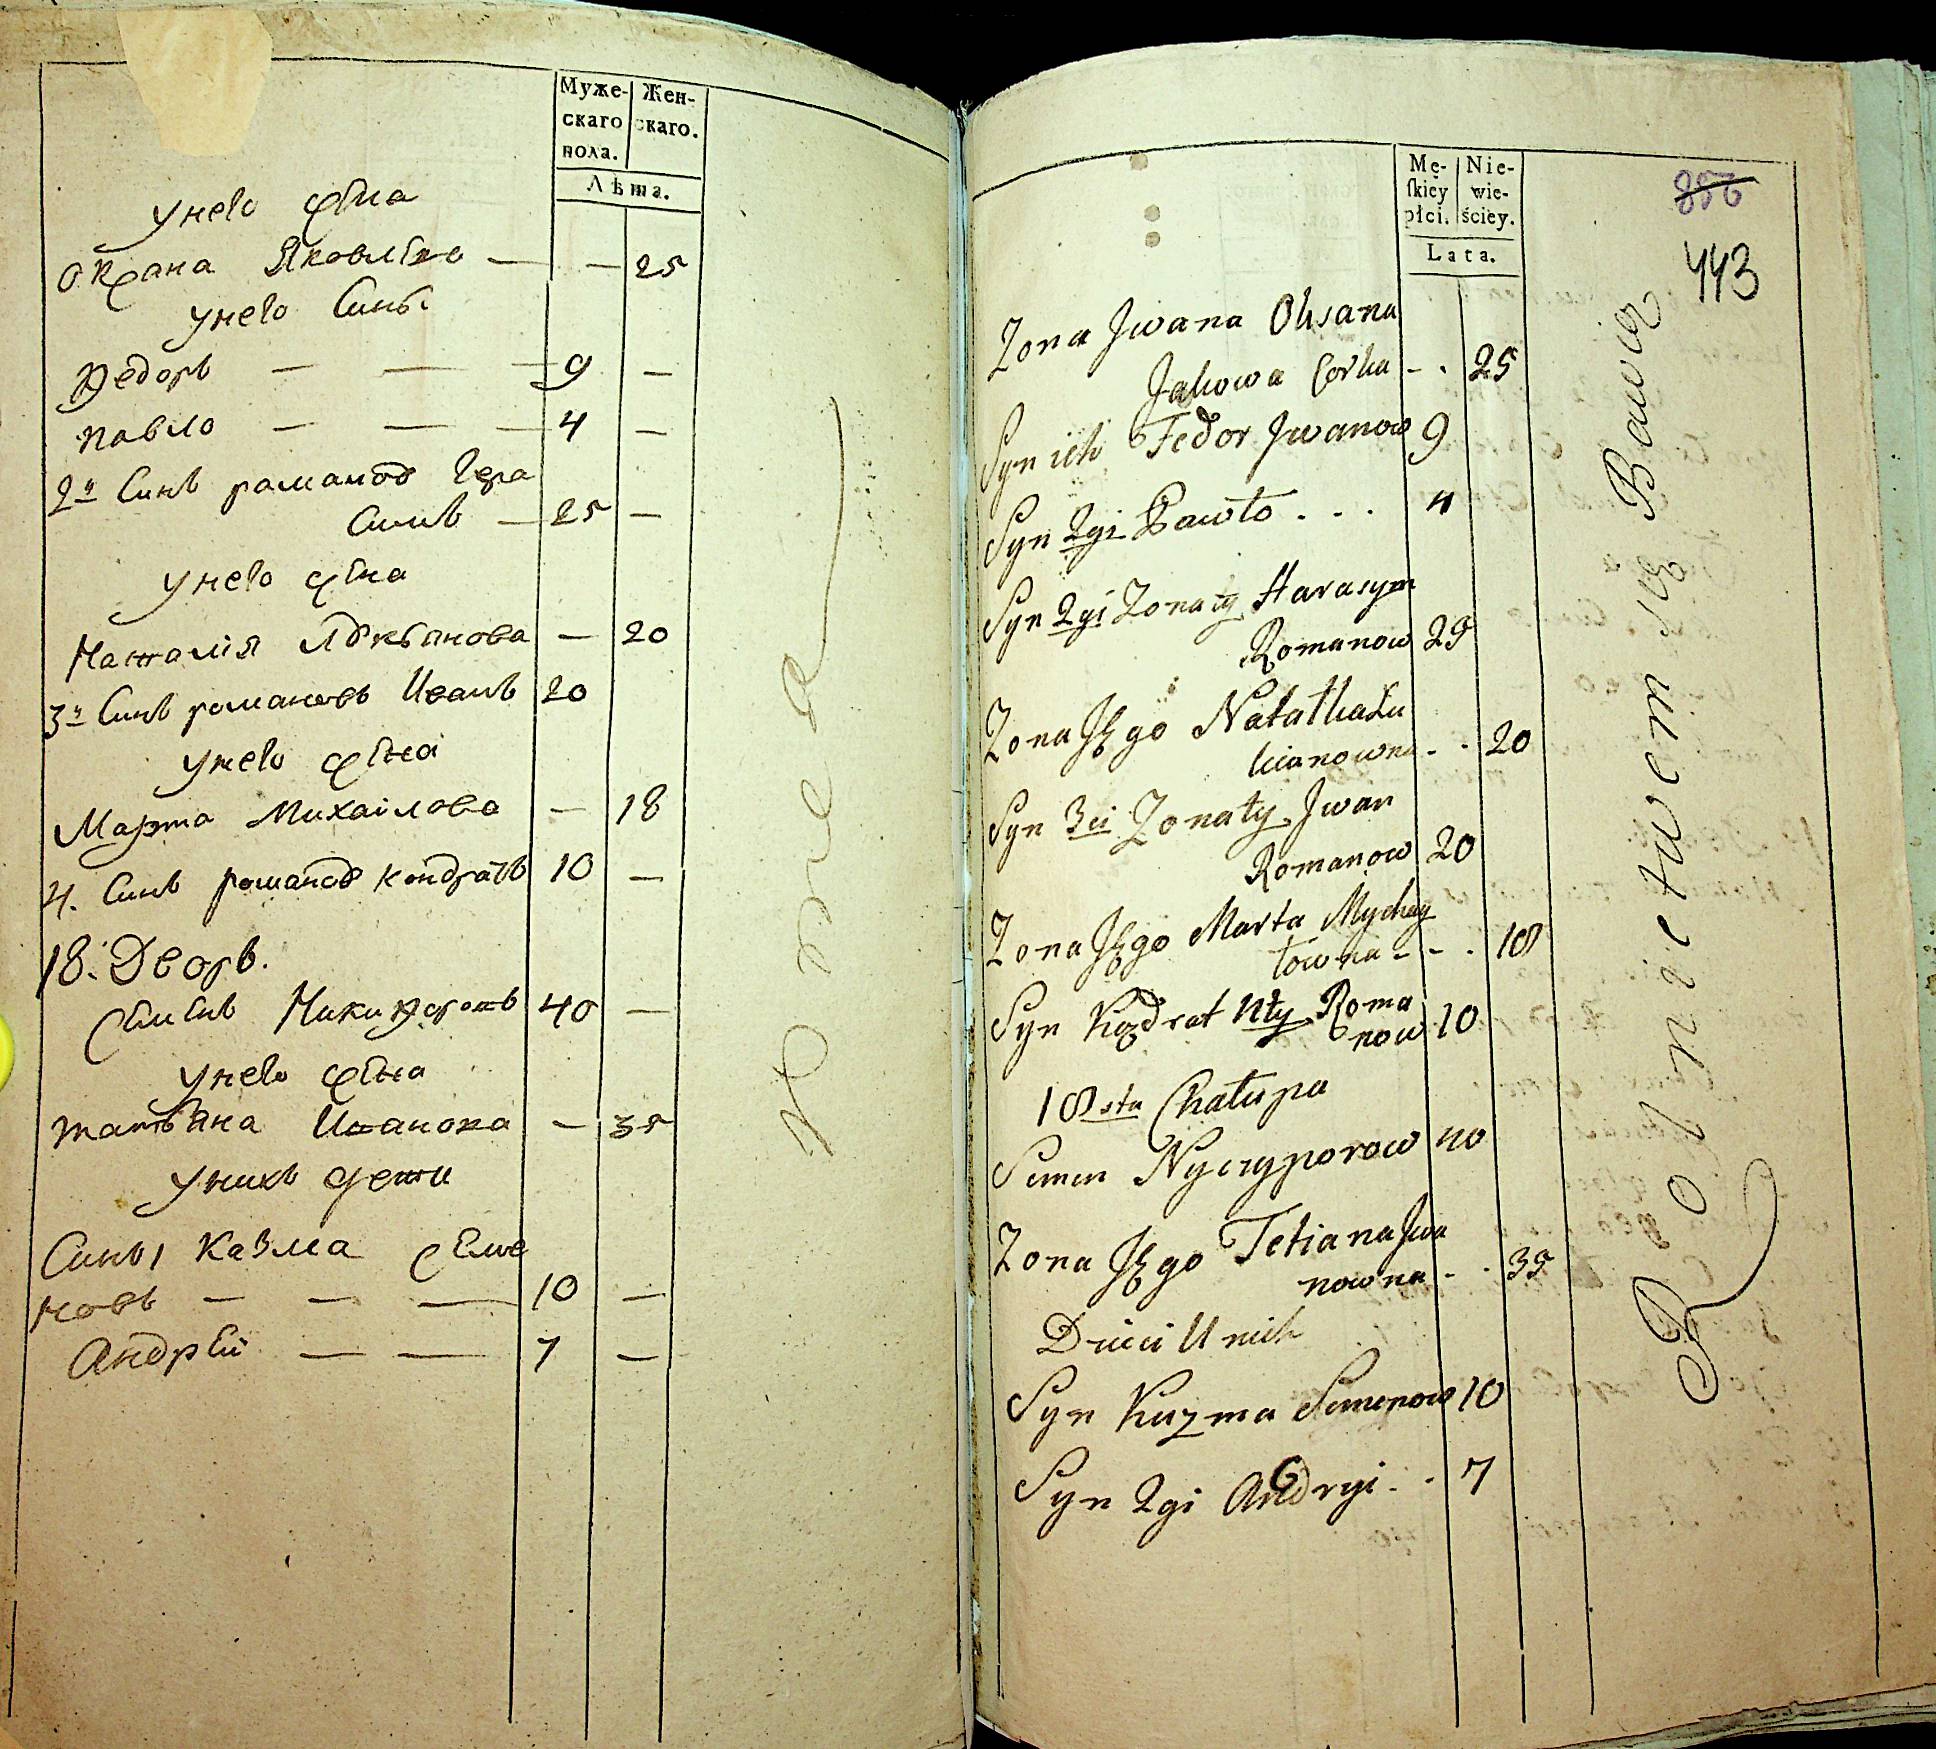 Муже-
скаго
пола.
Жен-
скаго.
Лѣта.
унего жена
Оксана Яковлева — — 25
унего Сины
Федоръ — — — 9 —
Павло — — — 4 —
2й Синъ романов Гера
Симъ — 25 —
унего жена
Наталія Лукьянова — 20
3й Синъ романовъ Иванъ 20
унего жена
Марта Михаілова — 18
4. Синъ романов кондратъ 10 —
18. Дворъ.
Семенъ Никифоровъ 40 —
унего жена
татьяна Иванова — 35
унихъ дети
Сины Казма Семе
новъ — — — 10 —
Андрей — — 7 —
Mę-
skiey
płci.
Nie-
wie-
ściey.
Lata.
856
443
Zona Jwana Oksana
Jakowa Corka - . 25
Syn ich Fedor Jwanow 9
Syn 2gi Pawło . . . 4
Syn 2gi Zonaty Harasym
Romanow 25
Zona Jego Natalka Łu
kianowna - . 20
Syn 3ci Zonaty Jwan
Romanow 20
Zona Jego Marta Mychay
łowna - - . 18
Syn Kozdrat 4ty Roma
now 10
18sta Chałupa
Semen Nyczyporow 40
Zona Jego Tetiana Jwa
nowna - . 35
Dzieci U nich
Syn Kuzma Semenow 10
Syn 2gi Andryi - . 7
Rolnictwem się Bawią